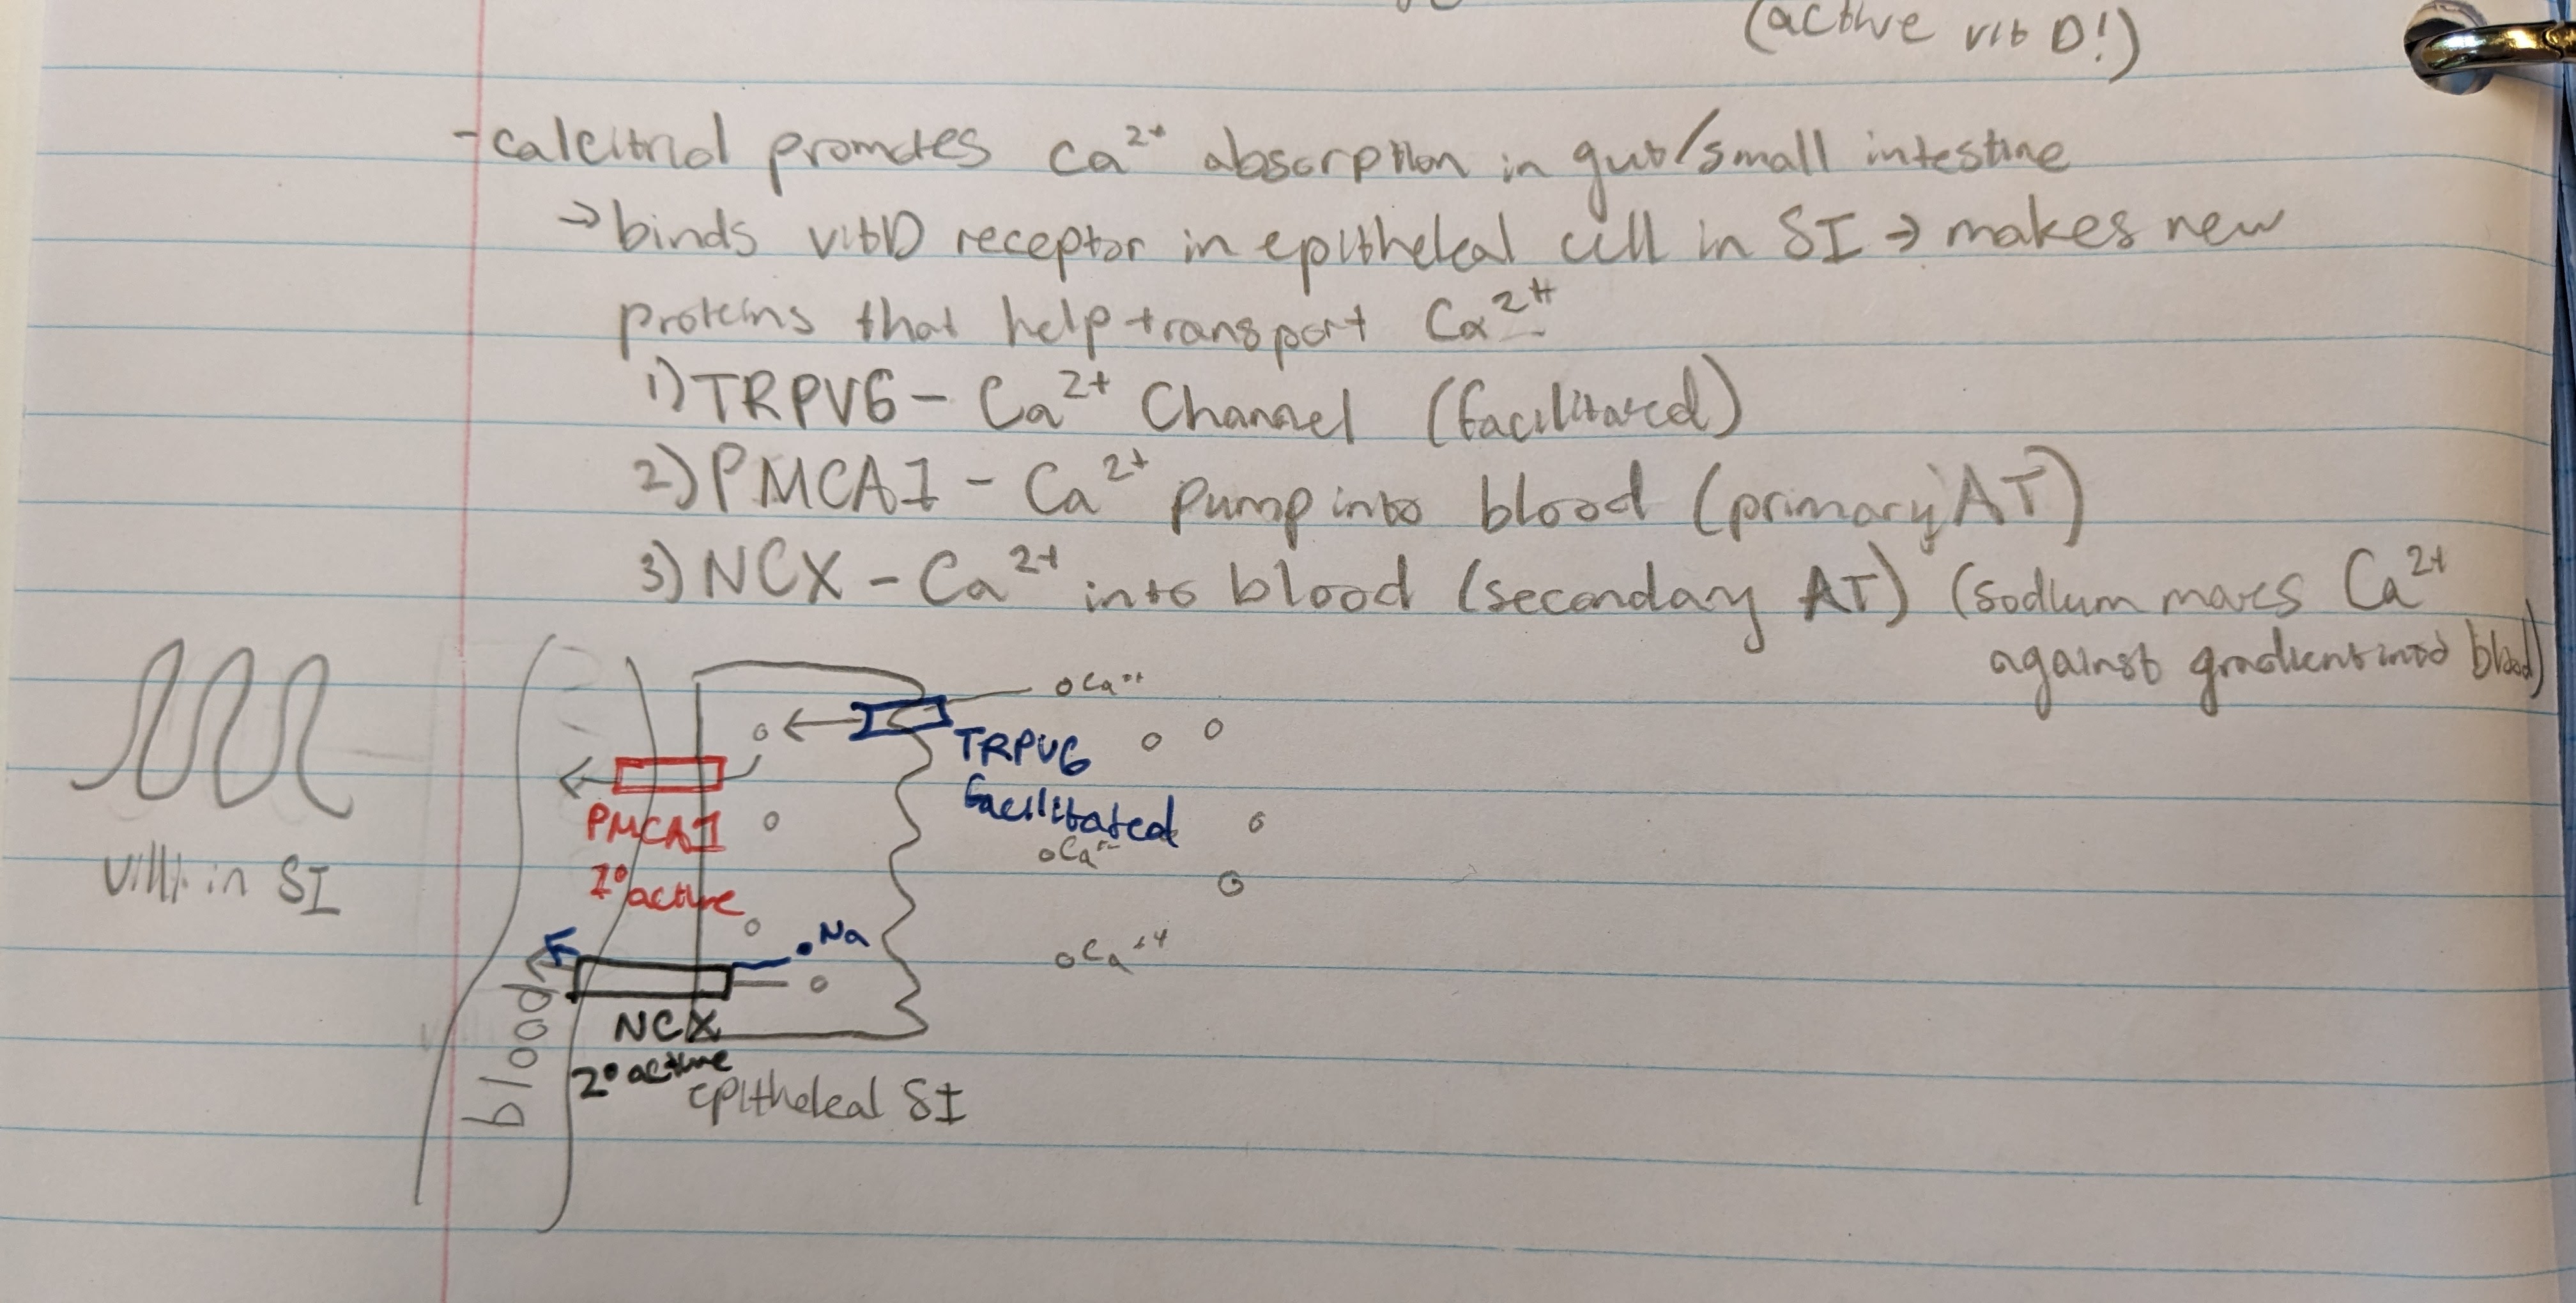 (active vit D!)
-calcitriol promotes Ca²⁺ absorption in gut/small intestine
→binds vitD receptor in epitheleal cell in SI → makes new
proteins that help transport Ca²⁺
1) TRPV6 - Ca²⁺ Channel (facilitated)
2) PMCA1 - Ca²⁺ pump into blood (primary AT)
3) NCX - Ca²⁺ into blood (secondary AT) (sodium moves Ca²⁺
against gradient into blood)
villi in SI
Ca⁺⁺
TRPV6
facilitated
PMCA1
1° active
Ca⁺⁺
Na
Ca⁺⁺
blood
NCX
2° active
epitheleal SI